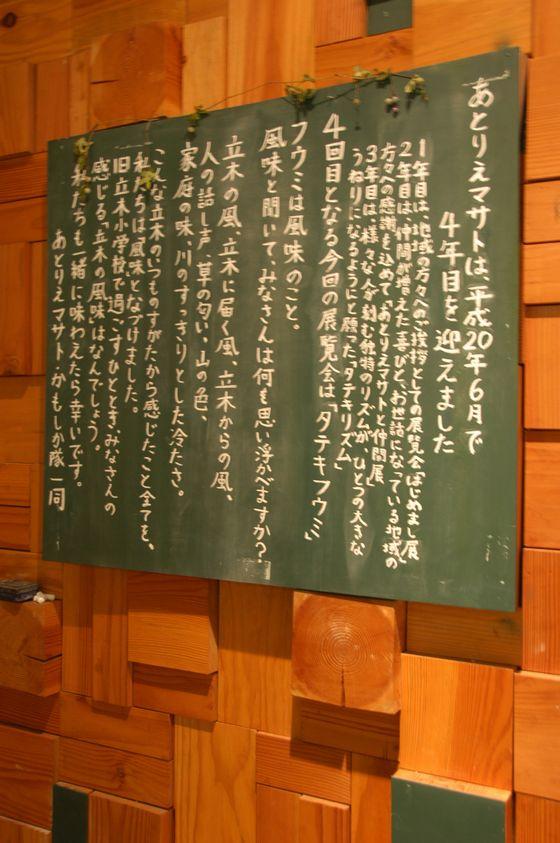 あとりえマサトは、平成20年6月で
4年目を迎えました
1年目は、地域の方々へのご挨拶としての展覧会「はじめまし展」
2年目は、仲間が増えた喜びと、お世話になっている地域の
方々への感謝を込めて「あとりえマサトと仲間展」
3年目は様々な人が刻む独特のリズムが、ひとつの大きな
うねりになるようにと願った「タテキリズム」
4回目となる今回の展覧会は「タテキフウミ」
フウミは風味のこと。
風味と聞いて、みなさんは何を思い浮かべますか？
立木の風、立木に届く風、立木からの風、
人の話し声、草の匂い、山の色、
家庭の味、川のすっきりとした冷たさ。
こんな立木のいつものすがたから感じたこと全てを、
私たちは「風味」となづけました。
旧立木小学校で過ごすひととき、みなさんの
感じる「立木の風味」はなんでしょう。
私たちも一緒に味わえたら幸いです。
あとりえマサト・かもしか隊一同